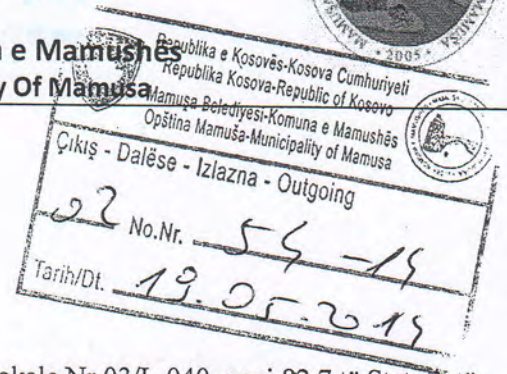 e Mamushës
y Of Mamusa
MAMUŞA
2005
Republika e Kosovës-Kosova Cumhuriyeti
Republika Kosova-Republic of Kosovo
Mamuşa Belediyesi-Komuna e Mamushës
Opština Mamuša-Municipality of Mamusa
Çıkış - Dalëse - Izlazna - Outgoing
02 No.Nr. 54 -14
Tarih/Dt. 19.05.2014
Nr.03/L-040